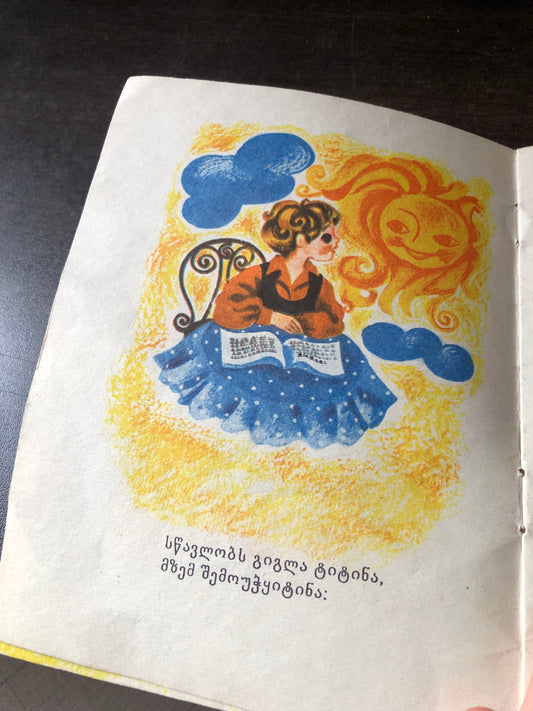 სწავლობს გიგლა ტიტინა,
მზემ შემოუჭყიტინა: